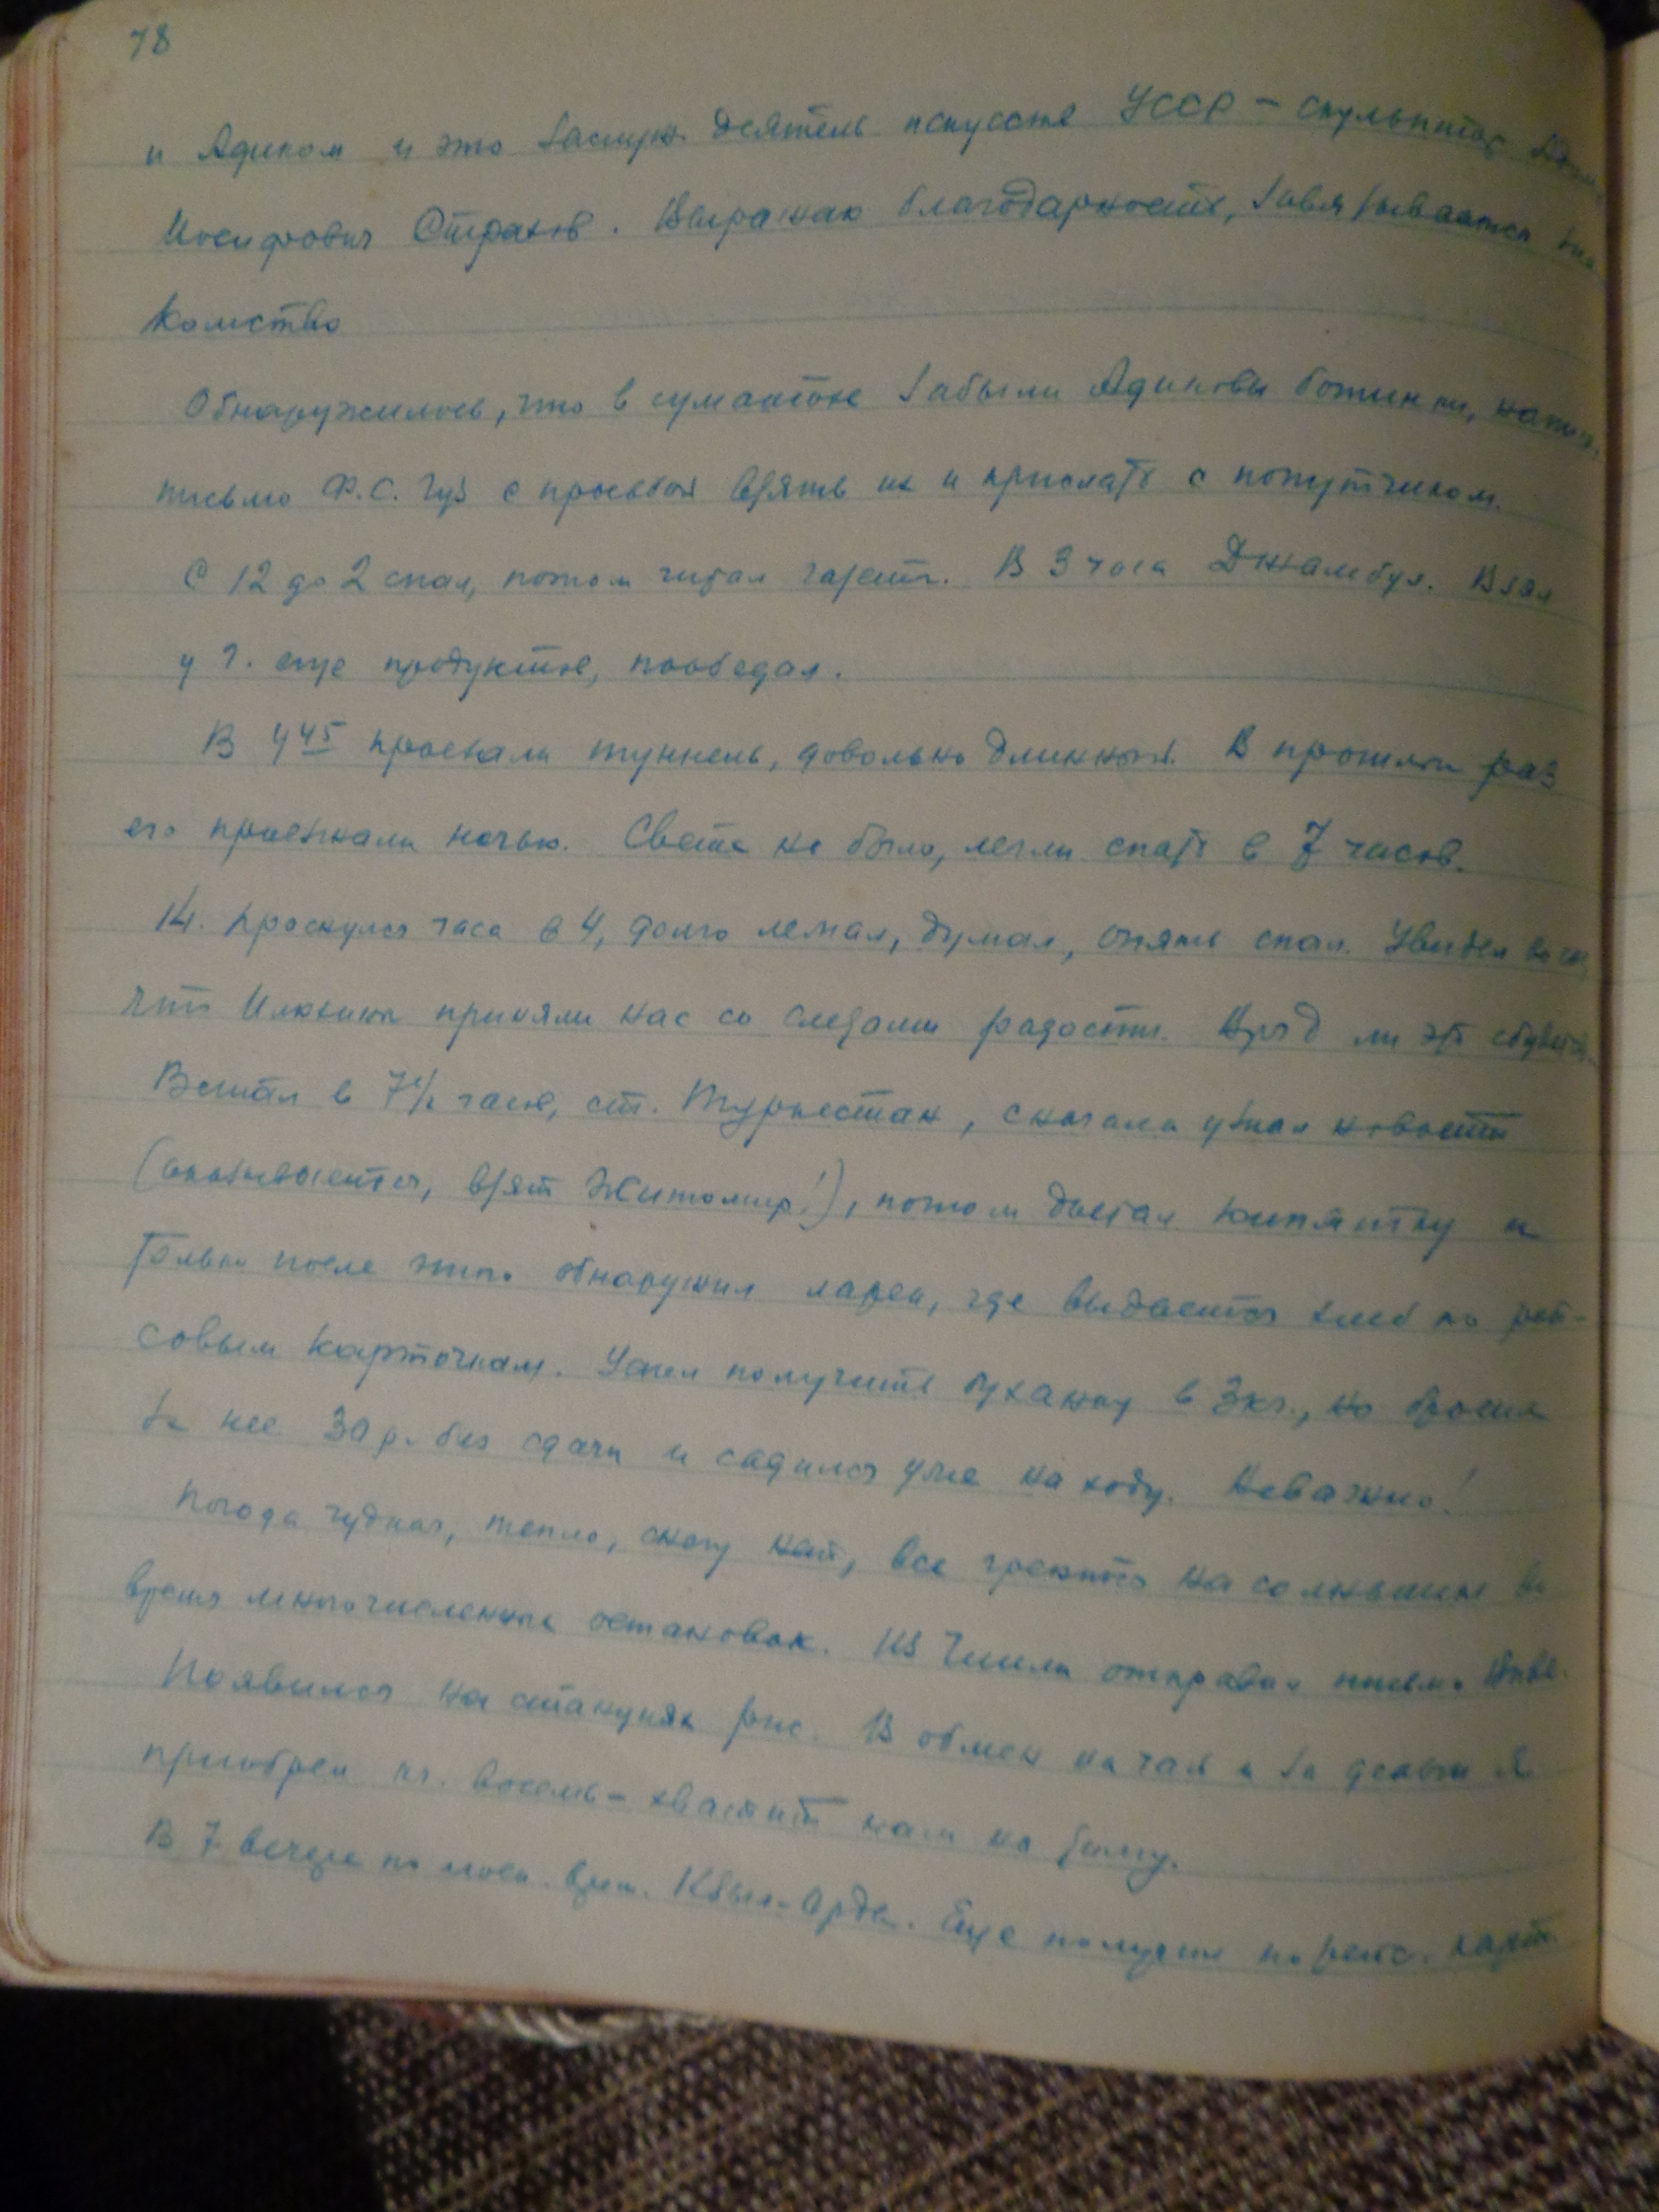 78
и Адиком и это заслуж. деятель искусств УССР – скульптор
Иосифович Страхов. Выражаю благодарность, завязывается зна-
комство
Обнаружилось, что в суматохе забыли Адиковы ботинки,
письмо Ф.С. Гуз с просьбой взять их и прислать с попутчиком.
С 12 до 2 спал, потом читал газеты. В 3 часа Джамбул. Взял
у Г. еще продуктов, пообедал.
В 4 45 проехали туннель, довольно длинный. В прошлый раз
его проезжали ночью. Света не было, легли спать в 7 часов.
14. Проснулся часа в 4, долго лежал, думал, опять спал. Увидел во сне,
что приняли нас со следами радости. Вряд ли это сбудется.
Встал в 7 1/2 часов, ст. Туркестан, сначала узнал новости
(оказывается, взят Житомир!), потом достал кипятку и
только после этого обнаружил ларек, где выдается хлеб по рей-
совым карточкам. Успел получить буханку в 3 кг., но бросил
за нее 30 р. без сдачи и садился уже на ходу. Неважно!
Погода чудная, тепло, снегу нет, все греются на солнышке во
время многочисленных остановок. Из Чиили отправил письмо
Появился на станциях рис. В обмен на чай и за деньги я
приобрел кг. восемь – хватит нам на зиму.
В 7 вечера по моск. врем. Кзыл-Орда. Еще получил по рейс. карт.